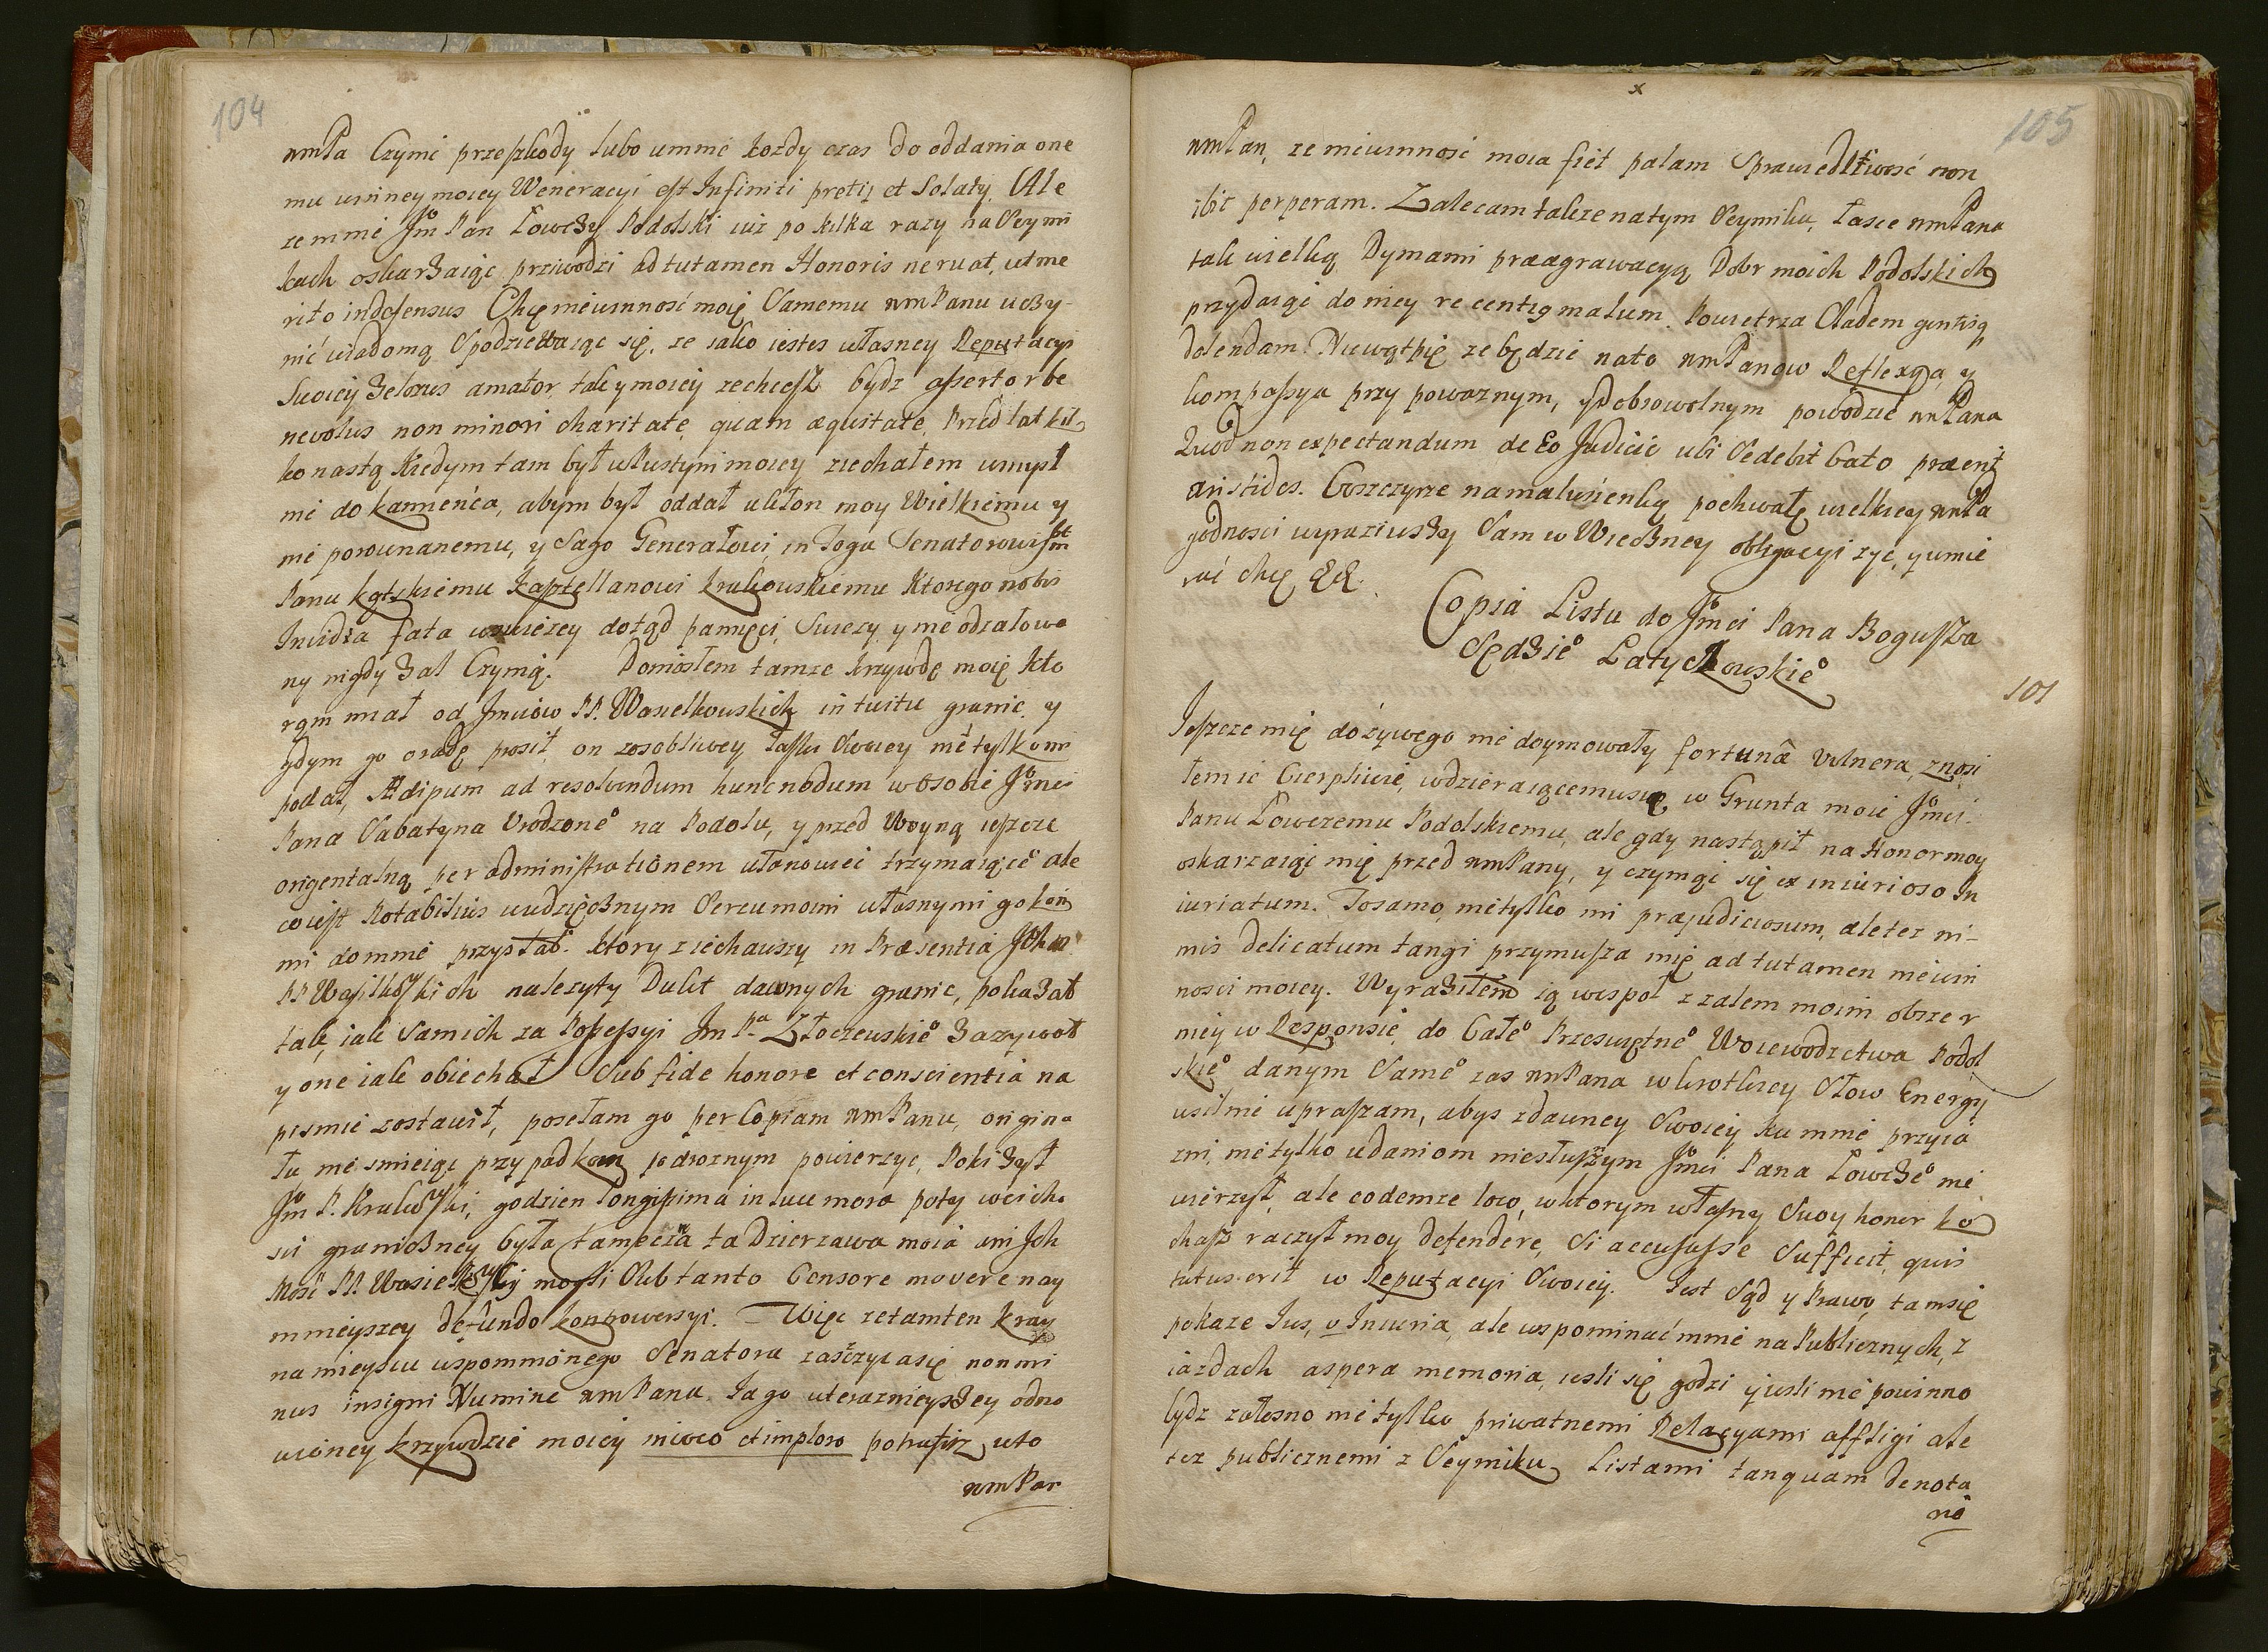 104
wmPa Czynić przeszkody lubo u mnie kozdy czas do oddania one
mu winney moiey Weneracyi est Infiniti pretij et Solatij. Ale
ze mnie Jm Pan Łowczy Podolski iuż po kilka razy na Seymi
kach oskarzaiąc przwodzi ad tutamen Honoris ne ruat, ut me
rito indefensus Chcę niewinność moię Samemu wmPanu uczy-
nić wiadomą Spodziewaiąc się, ze iako iestes własney Reputacyi
Swoiey Zelozus amator, tak y moiey zechcesz bydz assertor be
nevolus non minori charitate, quam æquitate. Przed lat kil
ko nastą Kiedym tam był w Pustyni moiey ziechałem umysl
nie do kamieńca, abym był oddał ukłon moy Wielkiemu y
nie porownanemu, y Sago Generałowi, in Toga Senatorowi
Panu kątskiemu kasztellanowi krakowskiemu Ktorego nobis
Invidza fata w swiezey dotąd pamięci, Swiezy y nie odzałowa
ny nigdy Zal Czynią. Doniosłem tamze krzywdę moię kto
rąm miał od Jmciow PP. Wasielkowskich intuitu granic y
gdym go oradę prosił, on zosobliwey łaski Swoiey nie tylko mi
podał, Ædipum ad resolvendum hunc nodum w osobie Jmci
Pana Sabatyna Urodzone na Podolu, y przed Woyną ieszcze
orientalną per administrationem włanowiei trzymaiące ale
co iest Notabilius wdzięcznym Sercu moim własnymi go koń
mi do mnie przysłał. ktory ziechawszy in Præsentia Jch m
PP Wasilkoskich nalezyty Dukt dawnych granic, pokazał
tak, iak Samich za Possessyi Jm Pa Złoczewskie Zazywoł
y one iak obiechał Sub fide honore et conscientia na
pismie zostawił, posełam go per Copiam wmPanu, origina
łu nie smieiąc przypadkom podroznym powierzyc, Poki Zył
Jm P. Krakoski, godzien longissima in luce mora poty w cicho
sci graniczney była tameczna ta Dzierzawa moia ani Jch
Mość PP. Wasielkoscy mogli Sub tanto Censore movere nay
mnieyszey de fundo kontrowersyi. Więc ze tamten kray
na mieyscu wspomnionego Senatora zaszczyca się non mi
nus insigni Numine wmPana Ia go w terazniejszey odno
wioney krzywdzie moiey invoco et imploro potrafisz w to
wmPan
x
105
wmPan, ze niewinność moia fiet palam Sprawiedliwość non
ibit perperam. Zalecam takze na tym Seymiku, łasce wmPana
tak wielką Dymami præagrawacyą Dobr moich Podolskich
przydaiąc do niey recentis malum. Powietrza Cladem gentisq
dolendam. Nie wątpię ze będzie na to wmPanow Reflexya, y
kompassya przy powaznym, y Dobrowolnym powodzie wmPana
Quod non expectandum de Eo Judicio ubi Sedebit Cato præerit
aristides. Coszczyrze na maluśienką pochwałę wielkiey wmPa
godnosci wyraziwszy Sam w Wieczney obligacyi zyć, y umie
rać chcę &&.
Copia Listu do Jmci Pana Bogusza
Sędzie Latyczowskie
101
Ieszcze mię do zywego nie doymowały fortunâ vulnera, znosi
łem ie Cierpliwie, wdzieraiącemu się w Grunta moie Jmci
Panu Łowczemu Podolskiemu, ale gdy nastąpił na Honor moy
oskarzaiąc mię przed wmPany, y czyniąc się ex iniurioso In
iuriatum. To samo, nie tylko mi præjudiciosum, ale tez ni-
mis delicatum tangi przymusza mię ad tutamen niewin
nosci moiey. Wyraziłem ią wespoł z zalem moim obszer
niey w Responsie, do Całe Przeswietne Woiewodztwa Podol
skie danym Same zas wmPana w krotkiey Słow Energij
usilnie upraszam, abys zdawney Swoiey ku mnie przyia
zni, nie tylko udaniom niesłusznym Jmci Pana Łowcze nie
wierzył, ale eodemze loco, w ktorym własny Swoy honor ko
chasz raczył moy defendere, Si accusasse Sufficit, quis
tutus erit w Reputacyi Swoiey. Iest Sąd y Prawo, tam się
pokaze Ius, v Iniuria, ale wspominać mnie na Publicznych, z
iazdach aspera memoria, iesli się godzi y iesli nie powinno
bydz załosno nie tylko priwatnemi Relacyami affligi ale
tez publicznemi z Seymiku Listami tanquam denota
ne